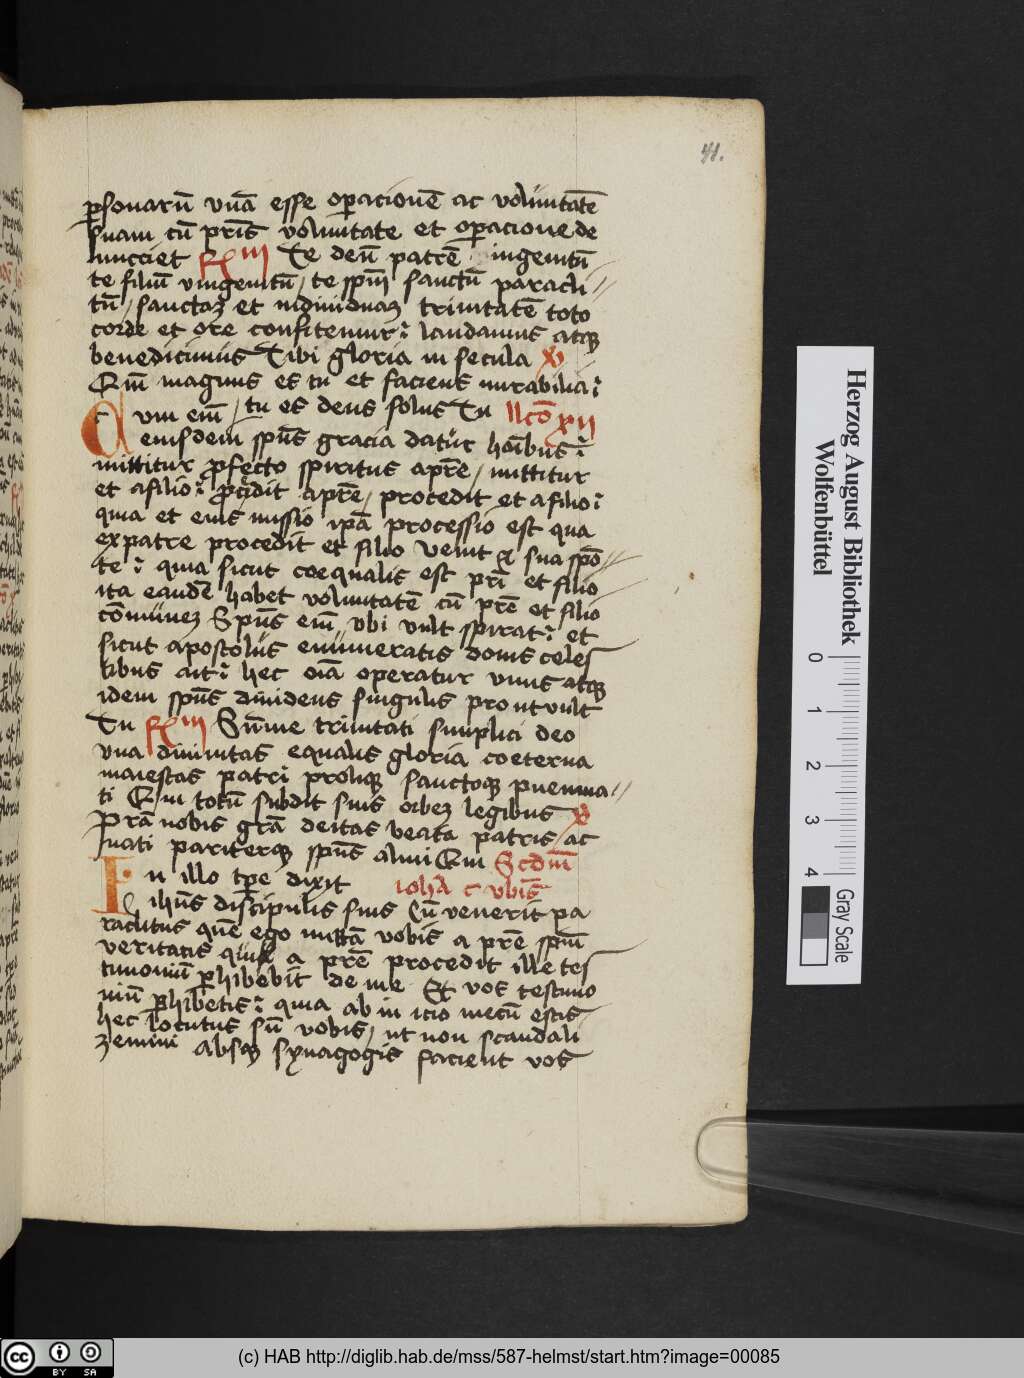 41.
ꝑsonarū vnā esse oꝑacionē ac volūntatē
suam cū pr̄is voluntate et oꝑacione de
nuncciet R̃ III Te deū patrē ingenitū
te filiū vnigenitū / te spm̄ sanctū paracli
tū / sanctaʒ et indiuiduaʒ trinitatē toto
corde et ore confitemur laudamus atqꝫ
benedicimus Tibi gloria in secula v̷
Qm̄ magnus es tu et faciens mirabilia
Cum em̄ / tu es deus solus Tu llc̄o xii
eiusdem spūs gracia datur hoībus
mittitur ꝓfecto spiritus a prē / mittitur
et a filio ꝓcidit a prē / procedit et a filio
quia et eius missio ipā processio est qua
ex patre procedit et filio venit & sua spō
te quia sicut coequalis est pri et filio
ita eandē habet voluntatē cū prē et filio
cōmunēʒ Spūs em̄ vbi vult spirat et
sicut apostolus enumeratis donis celes
tibus ait hec oīa operatur vnus atqꝫ
idem spūs diuidens singulis prout vult
Tu R̃ III Sūme trinitati simplici deo
vna diuinitas equalis gloria coeterna
maiestas patri proliqꝫ sanctoqꝫ pneuma
ti Qui totū subdit suis orbeʒ legibus v̷
Prā nobis grā deitas beata patris / ac
nati pariterqꝫ spūs almi Qui Scdm̄
In illo tp̄e dixit ioha c vbīs
ihūs discipulis suis Cū venerit pa
raclitus quē ego mittā vobis a prē spm̄
veritatis qui a prē procedit ille tes
timoniū ꝑhibebit de me Et vos testimo
niū ꝑhibetis quia ab in icio mecū estis
hec locutus sū vobis / ut non scandali
zemini absqꝫ synagogis facient vos
Herzog August Bibliothek
Wolfenbüttel
0 1 2 3 4
Gray Scale
cc BY SA
(c) HAB http://diglib.hab.de/mss/587-helmst/start.htm?image=00085